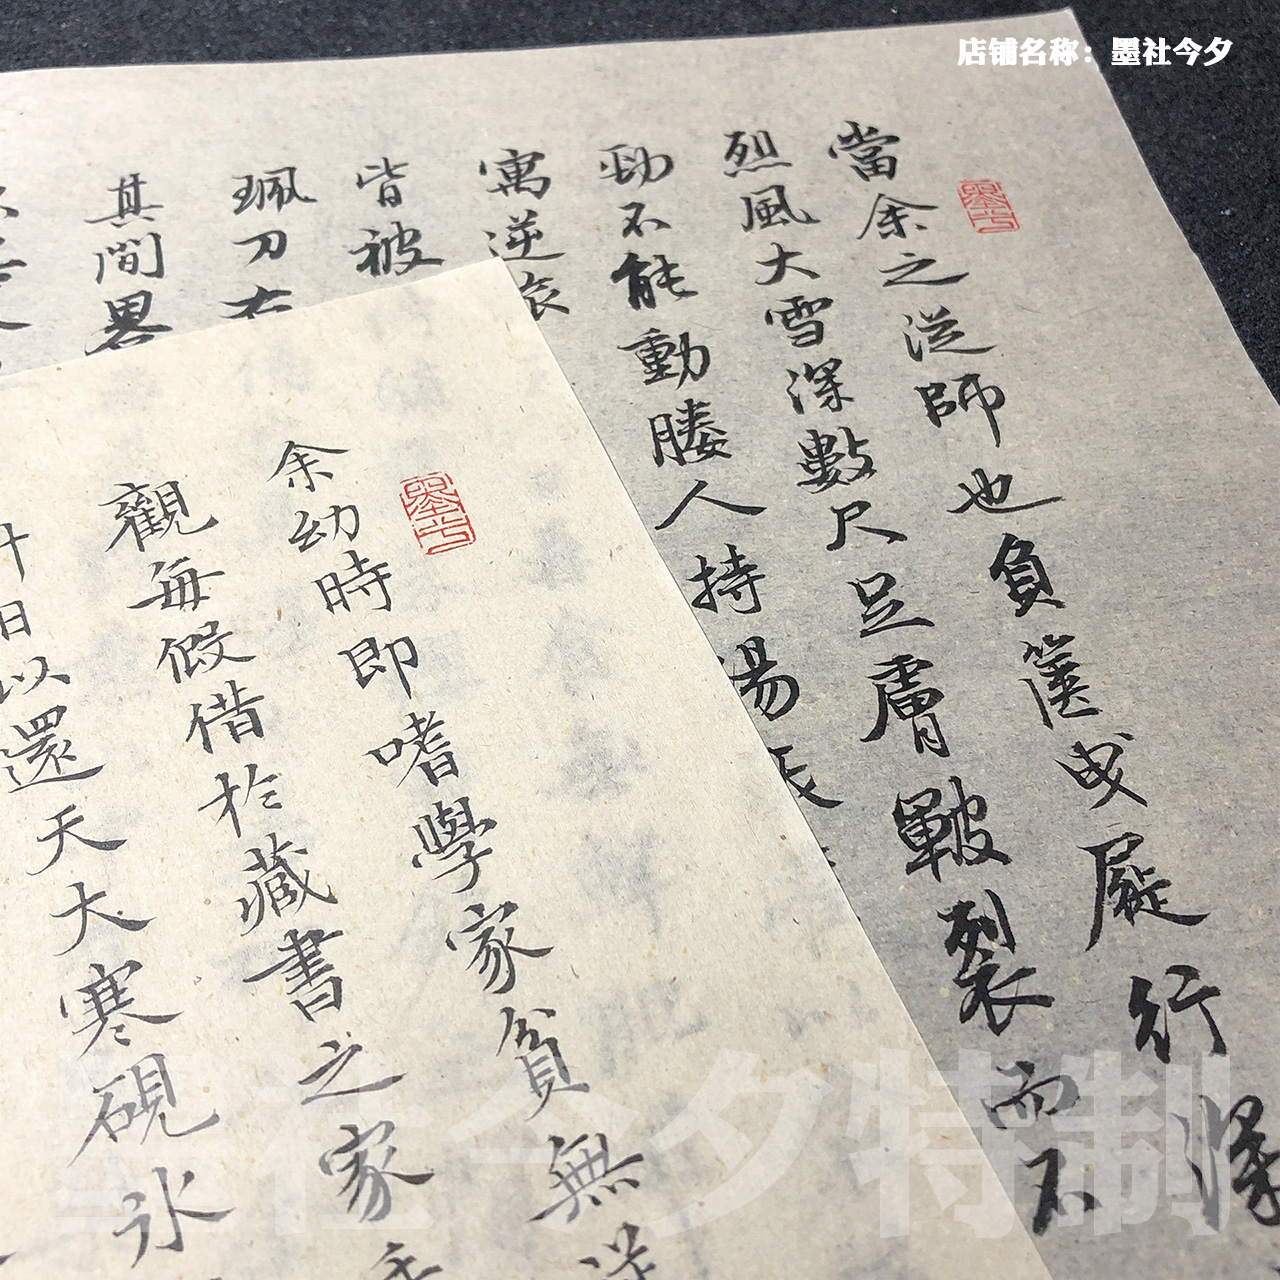 店铺名称：墨社今夕
當余之從師也負篋曳屣行深
烈風大雪深數尺足膚皸裂而不
勁不能動媵人持湯
寓逆旅
皆被
珮刀右
其間畧
余幼時即嗜學家貧無從
觀每假借於藏書之家
計日以還天大寒硯冰
墨社今夕特制